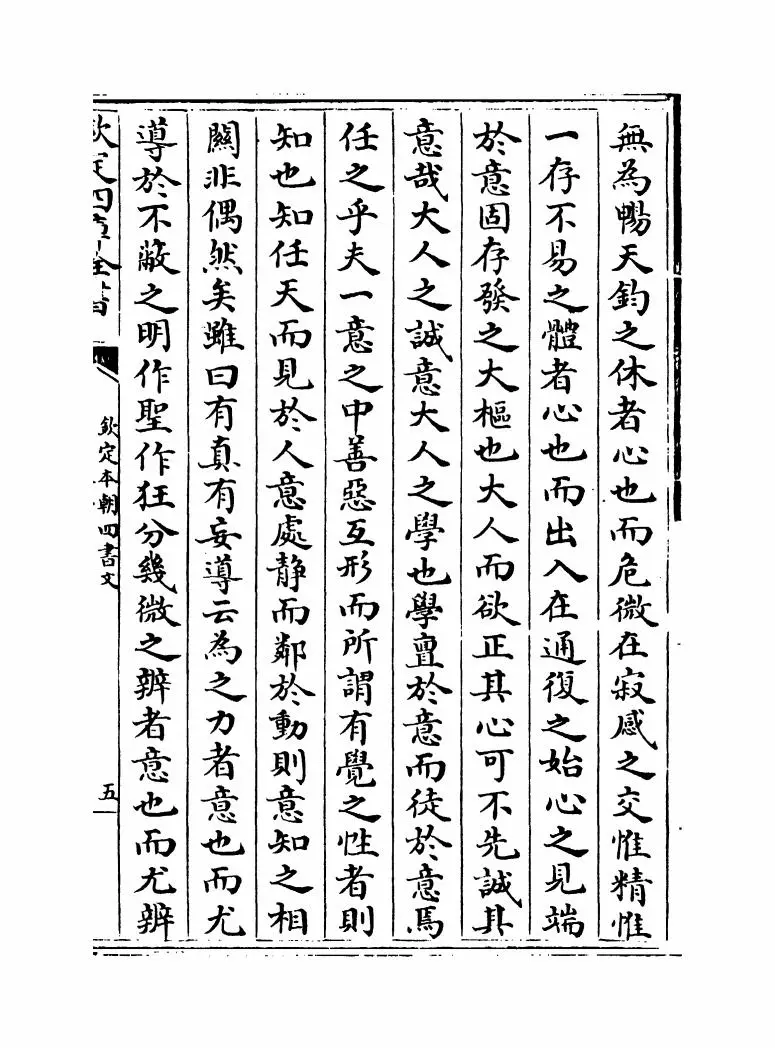 無為暢天鈞之休者心也而危微在寂感之交惟精惟
一存不易之體者心也而出入在通復之始心之見端
於意固存發之大樞也大人而欲正其心可不先誠其
意哉大人之誠意大人之學也學亶於意而徒於意焉
任之乎夫一意之中善惡互形而所謂有覺之性者則
知也知任天而見於人意處静而鄰於動則意知之相
關非偶然矣雖曰有真有妄導云為之力者意也而尤
導於不蔽之明作聖作狂分幾微之辨者意也而尤辨
欽定四庫全書
欽定本朝四書文
五